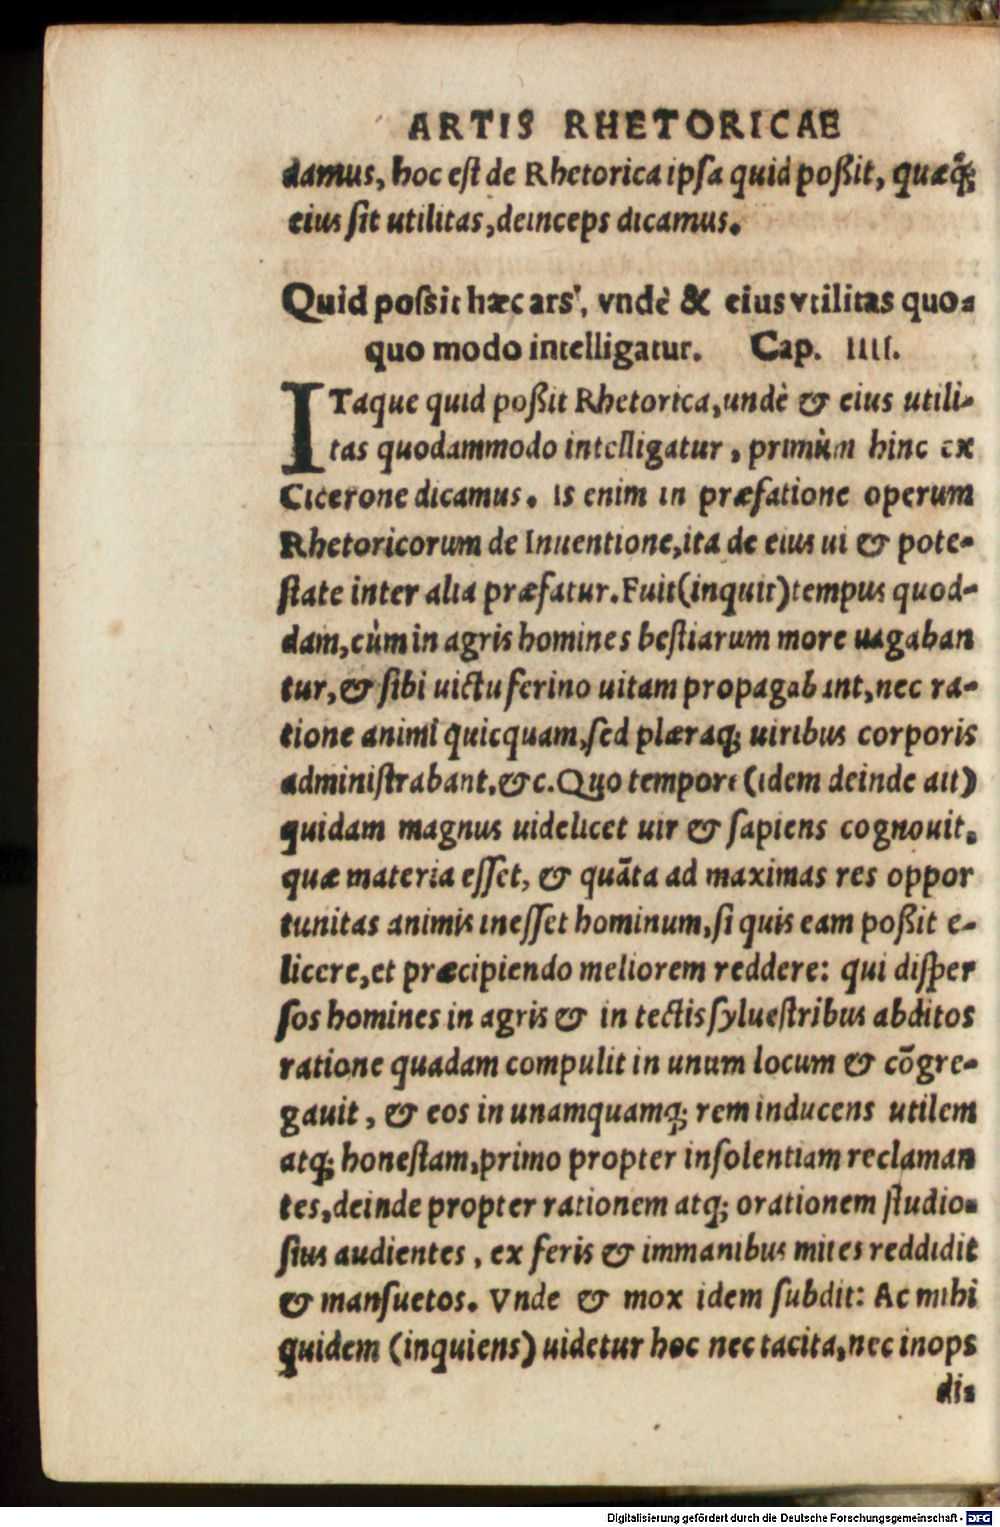 ARTIS RHETORICAE
damus, hoc est de Rhetorica ipsa quid poßit, quæq́;
eius sit utilitas, deinceps dicamus.
Quid possit hæc ars, vndè & eius vtilitas quo-
quo modo intelligatur. Cap. IIII.
ITaque quid poßit Rhetorica, undè & eius utili-
tas quodammodo intelligatur, primùm hinc ex
Cicerone dicamus. Is enim in præfatione operum
Rhetoricorum de Inuentione, ita de eius ui & pote-
state inter alia præfatur. Fuit (inquit) tempus quod-
dam, cùm in agris homines bestiarum more uagaban
tur, & sibi uictu ferino uitam propagabant, nec ra-
tione animi quicquam, sed plæraq; uiribus corporis
administrabant, &c. Quo tempore (idem deinde ait)
quidam magnus uidelicet uir & sapiens cognouit,
quæ materia esset, & quãta ad maximas res oppor
tunitas animis inesset hominum, si quis eam poßit e-
licere, et præcipiendo meliorem reddere: qui disper
sos homines in agris & in tectis syluestribus abditos
ratione quadam compulit in unum locum & cõgre-
gauit, & eos in unamquamq; rem inducens utilem
atq; honestam, primo propter insolentiam reclaman
tes, deinde propter rationem atq; orationem studio-
sius audientes, ex feris & immanibus mites reddidit
& mansuetos. Vnde & mox idem subdit: Ac mihi
quidem (inquiens) uidetur hoc nec tacita, nec inops
dis
Digitalisierung gefördert durch die Deutsche Forschungsgemeinschaft - DFG